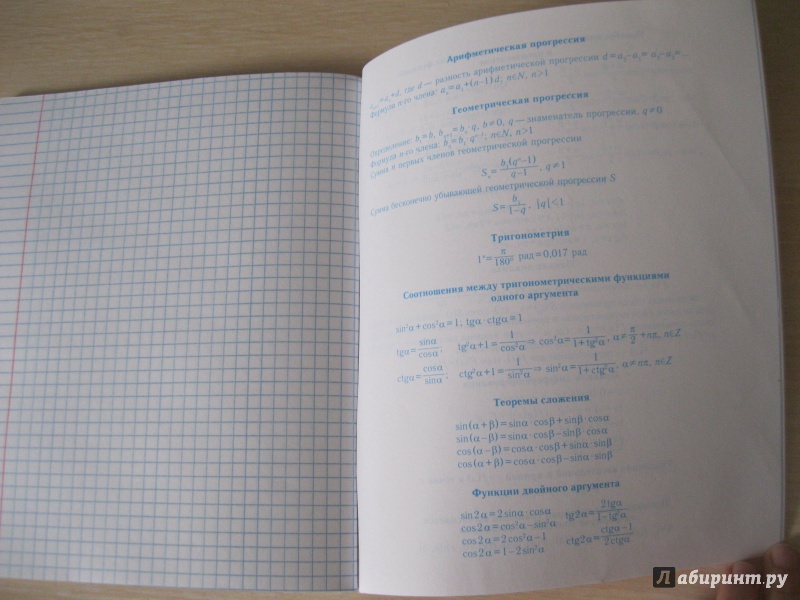 Арифметическая прогрессия
aₙ₊₁=aₙ+d, где d — разность арифметической прогрессии d=a₂−a₁= a₃−a₂=...
Формула n-го члена: aₙ=a₁+(n−1)d; n∈N, n>1
Геометрическая прогрессия
Определение: b₁=b, bₙ₊₁=bₙ·q, b≠0, q — знаменатель прогрессии, q≠0
Формула n-го члена: bₙ=b₁·qⁿ⁻¹; n∈N, n>1
Сумма n первых членов геометрической прогрессии
Sₙ= b₁(qⁿ−1)/(q−1), q≠1
Сумма бесконечно убывающей геометрической прогрессии S
S= b₁/(1−q), |q|<1
Тригонометрия
1°= π/180° рад=0,017 рад
Соотношения между тригонометрическими функциями
одного аргумента
sin²α+cos²α=1, tgα·ctgα=1
tgα= sinα/cosα; tg²α+1= 1/cos²α ⇒ cos²α= 1/(1+tg²α), α≠ π/2 +πn, n∈Z
ctgα= cosα/sinα; ctg²α+1= 1/sin²α ⇒ sin²α= 1/(1+ctg²α), α≠πn, n∈Z
Теоремы сложения
sin(α+β)=sinα·cosβ+sinβ·cosα
sin(α−β)=sinα·cosβ−sinβ·cosα
cos(α−β)=cosα·cosβ+sinα·sinβ
cos(α+β)=cosα·cosβ−sinα·sinβ
Функции двойного аргумента
sin2α=2sinα·cosα tg2α= 2tgα/(1−tg²α)
cos2α=cos²α−sin²α
cos2α=2cos²α−1 ctg2α= (ctgα−1)/(2ctgα)
cos2α=1−2sin²α
Лабиринт.ру